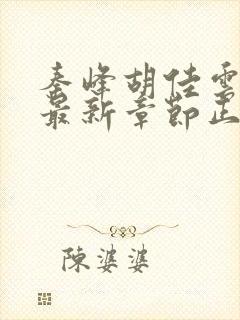 秦峰胡佳雲
最新章節正
陳婆婆